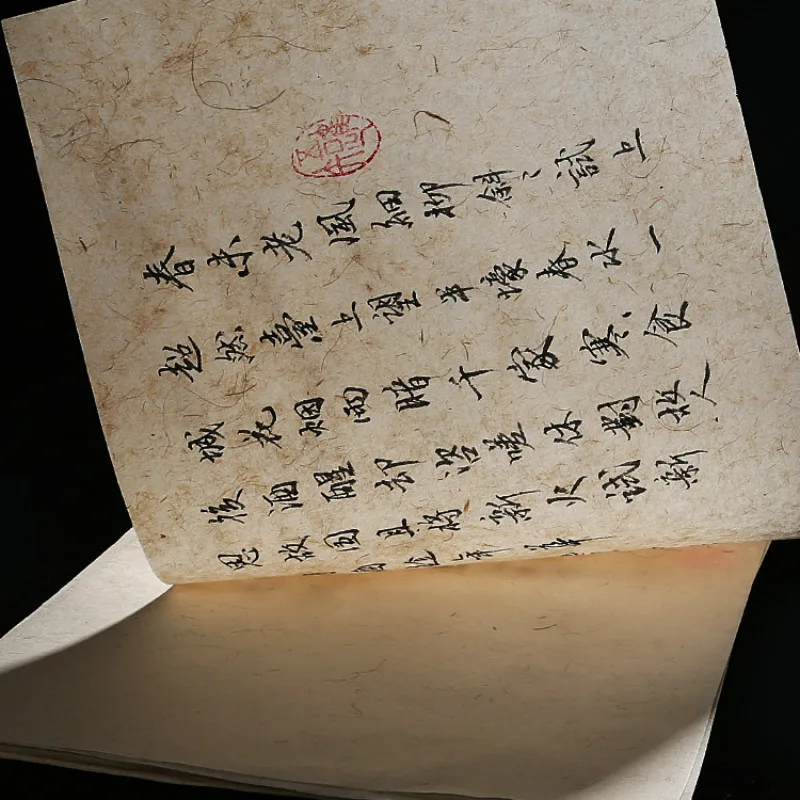 春未老風細柳斜々試上
超然臺上望半壕春水一
城花烟雨暗千家寒食
後酒醒却咨嗟休對故人
思故国且將新火試新